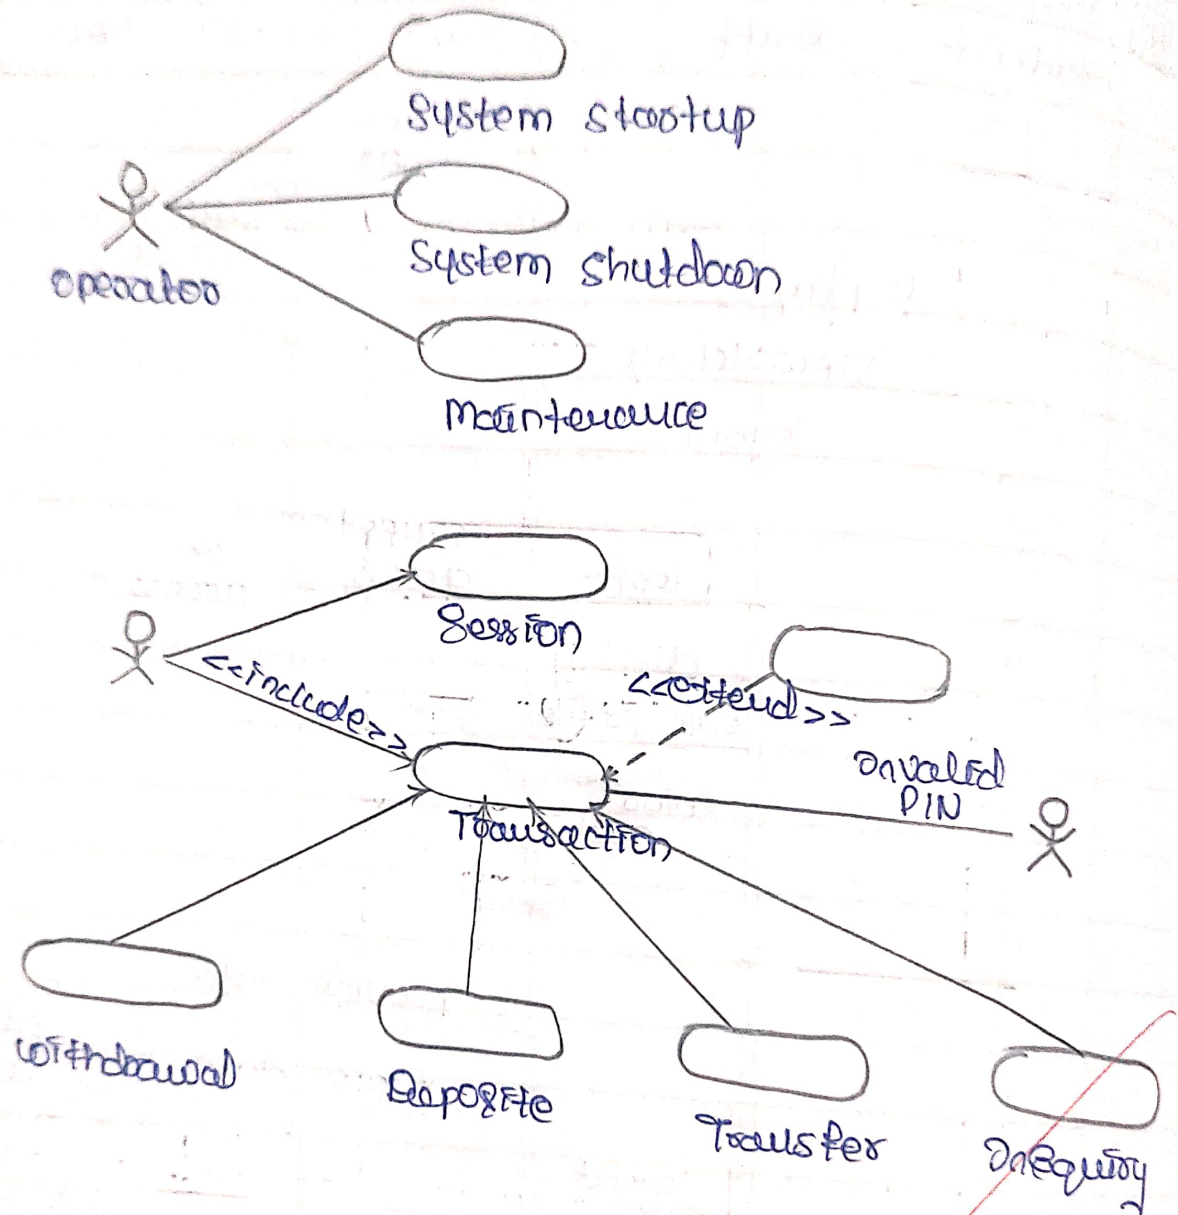 System startup
operator
System shutdown
Maintenance
Session
<<include>>
<<extend>>
Invalid
PIN
Transaction
withdrawal
Deposite
Transfer
Inequiry